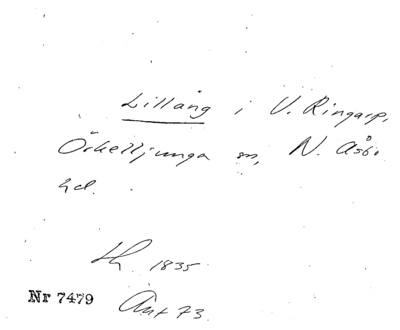 Lillång i V. Ringarp,
Örkelljunga sn, N. Åsbo
hd.
Lh. 1835
Nr 7479 Ant 73